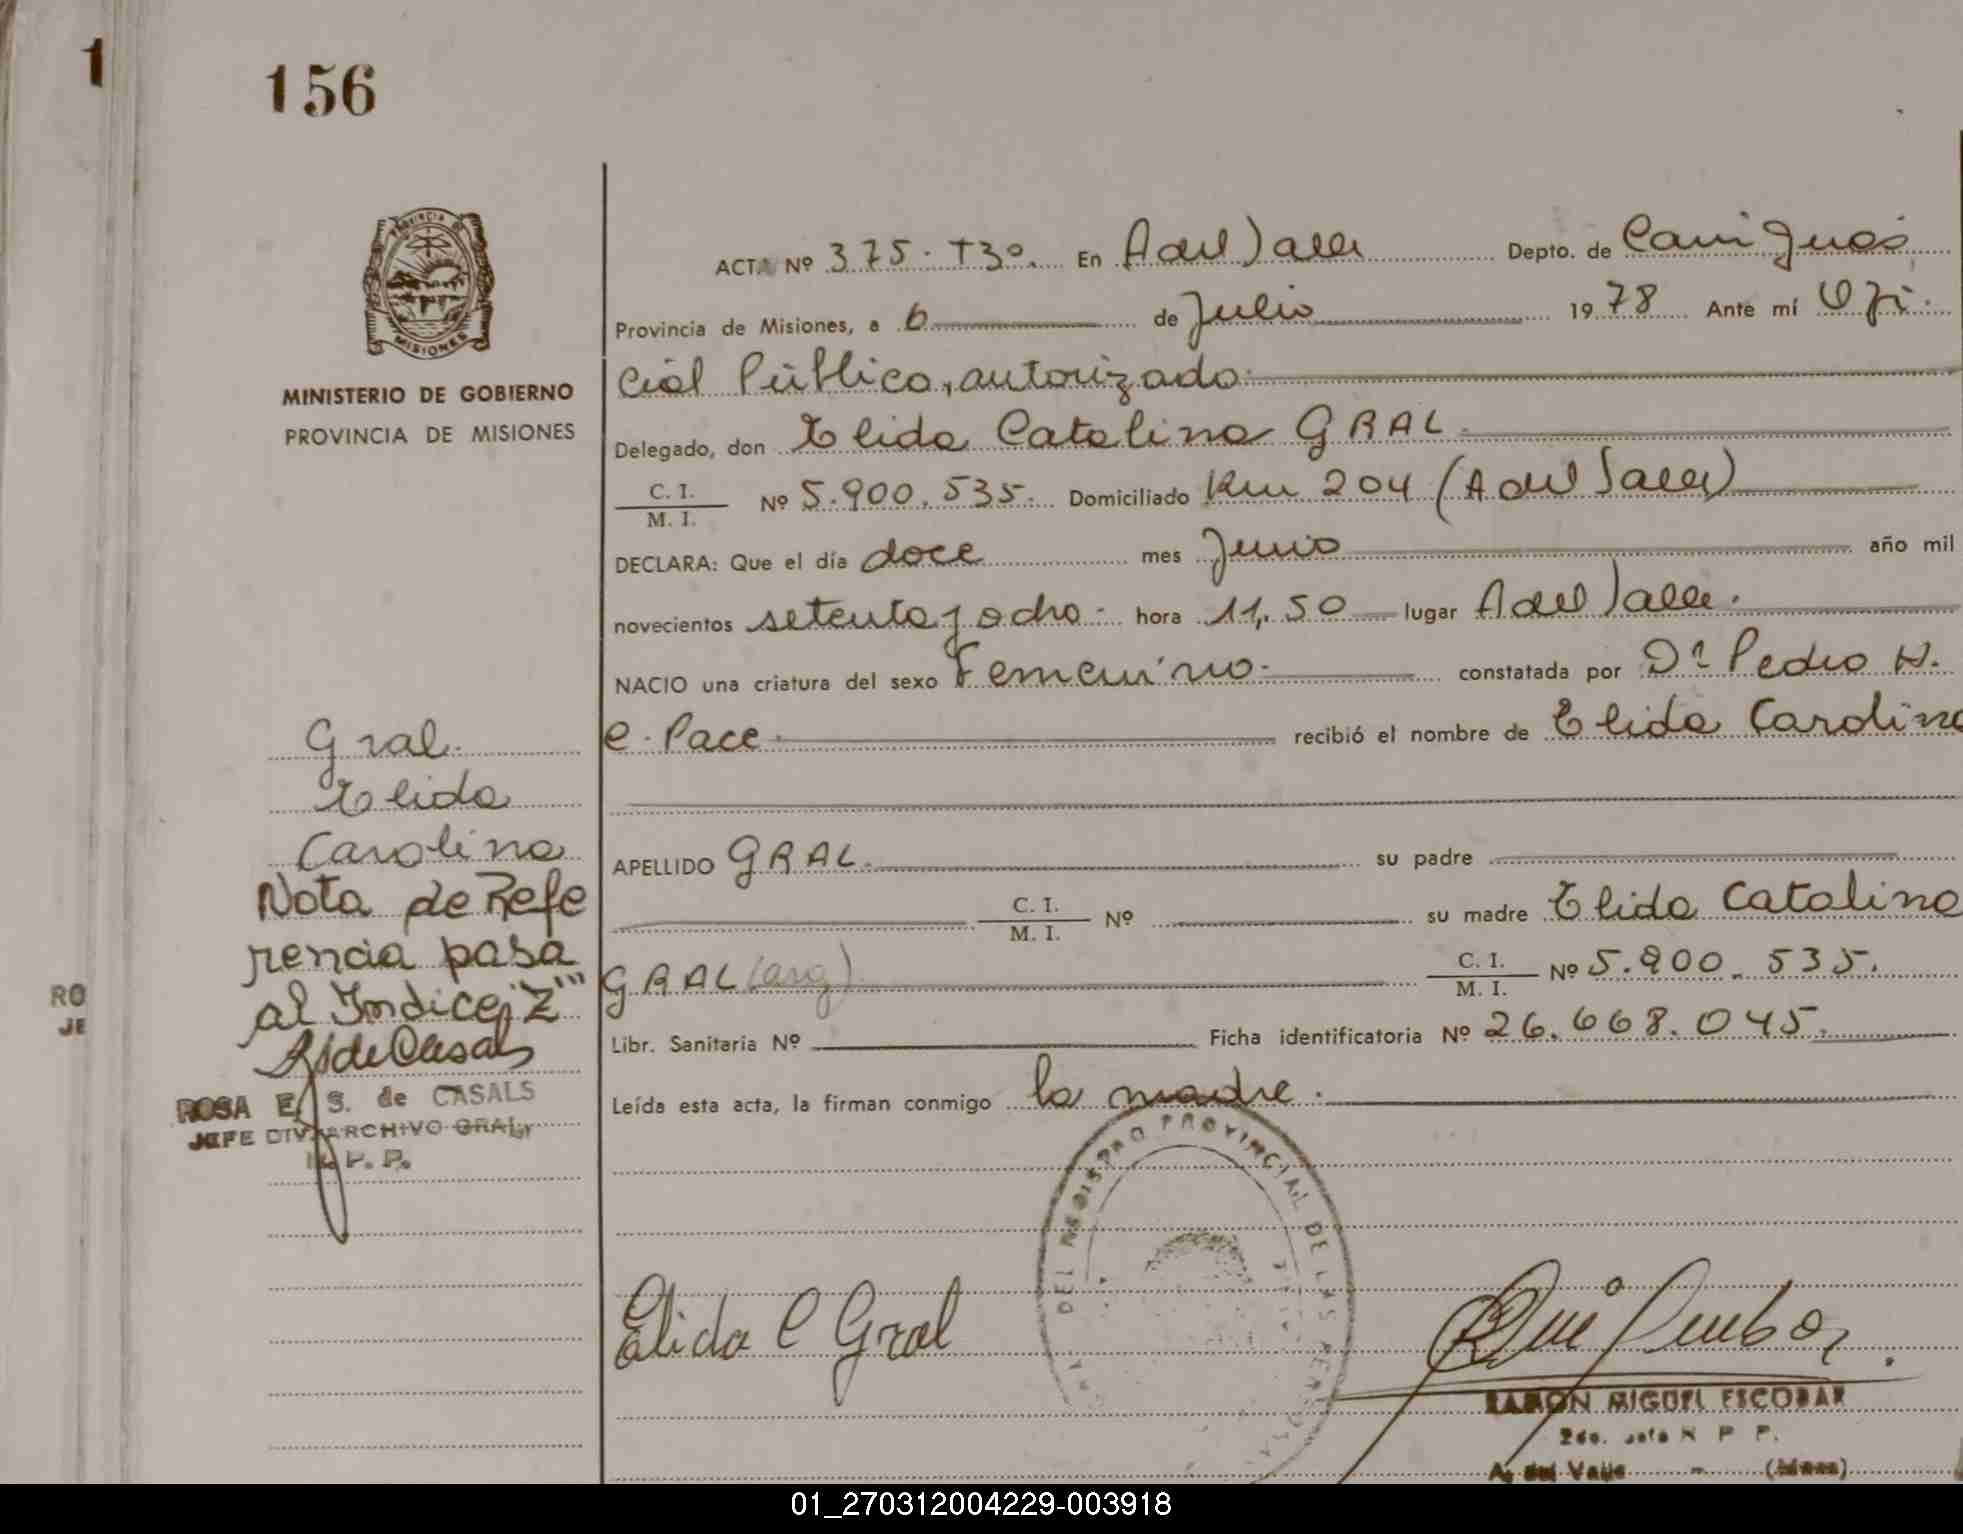 1
156
PROVINCIA DE
MISIONES
MINISTERIO DE GOBIERNO
PROVINCIA DE MISIONES
ACTA Nº 375. T3º. En A del Valle Depto. de Cainguás
Provincia de Misiones, a 6 de Julio 1978 Ante mí Ofi
cial Público, autorizado.
Delegado, don Elida Catalina GRAL.
C. I. / M. I. Nº 5.900.535. Domiciliado Km 204 (A del Valle)
DECLARA: Que el día doce mes Junio año mil
novecientos setenta y ocho. hora 11,50 lugar A del Valle.
NACIO una criatura del sexo Femenino. constatada por Dr Pedro H.
e. Pace. recibió el nombre de Elida Carolina
APELLIDO GRAL. su padre
C. I. / M. I. Nº su madre Elida Catalina
GRAL (arg) C. I. / M. I. Nº 5.900.535.
Libr. Sanitaria Nº Ficha identificatoria Nº 26.668.045.
Leída esta acta, la firman conmigo la madre.
Gral.
Elida
Carolina
Nota de Refe
rencia pasa
al Indice "Z"
RSdeCasals
ROSA E. S. de CASALS
JEFE DIV. ARCHIVO GRAL.
R. P. P.
RO
JE
DEL REGISTRO PROVINCIAL DE LAS PERSONAS
Elida C Gral
RAMON MIGUEL ESCOBAR
2do. Jefe R P P.
A. del Valle - (Mnes)
01_270312004229-003918